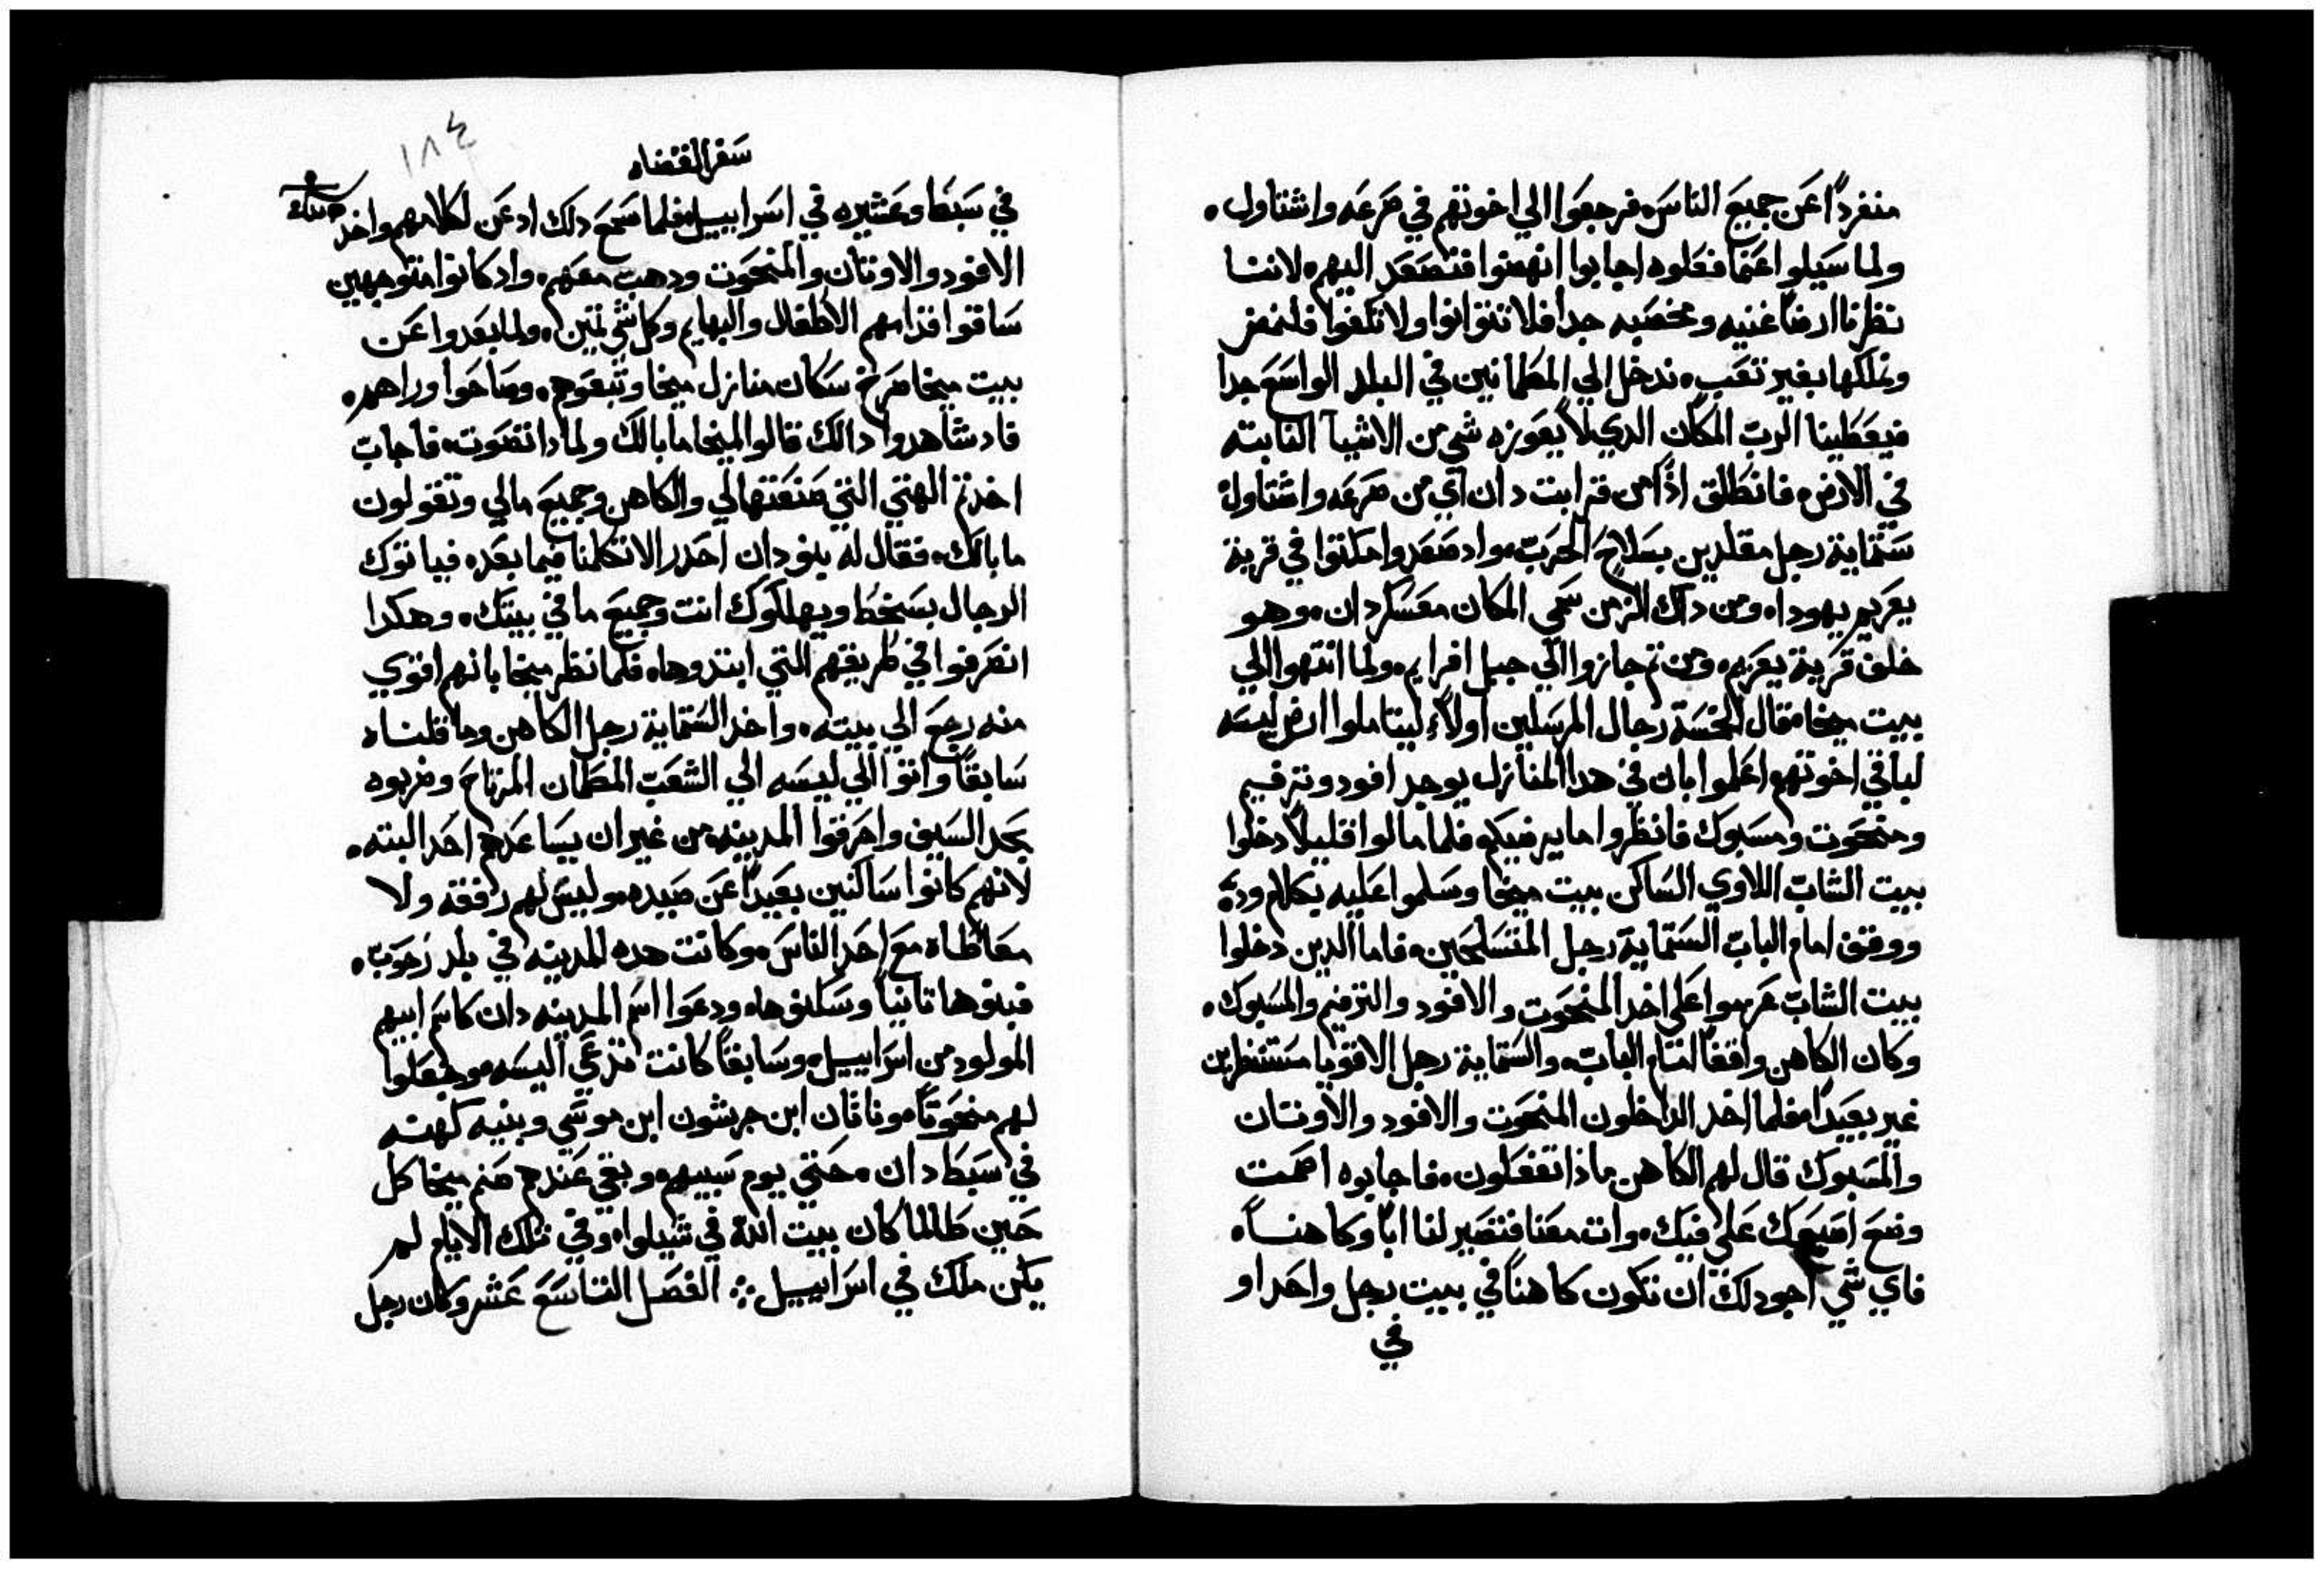 منفرداً عن جميع الناس، فرجعوا الي اخوتهم في صرعه واشتاول.
ولما سيلوا عنما فعلوه اجابوا انهضوا فنصعد اليهم، لاننا
نظرنا ارضاً غنيه ومخصبه جداً فلا تتوانوا ولا تكفوا فلنمض
ونملكها بغير تعب، ندخل الي المطمانين في البلد الواسع جداً
فيعطينا الرب المكان الدي لا يعوزه شي من الاشيا النابته
في الارض، فانطلق اذاً من قرابت دان اي من صرعه واشتاول
ستماية رجل مقلدين بسلاح الحرب، واد صعدوا مكتوا في قرية
يعريم يهودا، ومن داك الزمن سمي المكان معسكر دان، وهو
خلف قرية يعريم، ومن تم جازوا الي جبل افرايم، ولما انتهوا الي
بيت ميخا، فقال الخمسة رجال المرسلين اولاً ليتاملوا ارض ليسه
لباقي اخوتهم اعلموا بان في هدا المنازل يوجد افود وترفيم
ومنحوت ومسبوك فانظروا ما يرضيكم، فلما مالوا قليلاً دخلوا
بيت الشاب اللاوي الساكن بيت ميخا وسلموا عليه بكلام ودي
ووقف امام الباب الستماية رجل المتسلحين، فاما الدين دخلوا
بيت الشاب عزموا علي اخد المنحوت والافود والترفيم والمسبوك،
وكان الكاهن واقفاً امام الباب، والستماية رجل الاقويا مستنظرين
غير بعيد، فلما اخد الداخلون المنحوت والافود والاوتان
والمسبوك قال لهم الكاهن ماذا تفعلون، فاجابوه اصمت
وضع اصبعك علي فيك، وات معنا فتصير لنا اباً وكاهناً،
فاي شي اجود لك ان تكون كاهناً في بيت رجل واحد او
في
١٨٤
سفر القضاه
في سبط وعشيره في اسراييل، فلما سمع دلك ادعن لكلامهم واخد
الافود والاوتان والمنحوت ودهب معهم، واد كانوا متوجهين
ساقوا قدامهم الاطفال والبهايم وكل شي تمين، ولما بعدوا عن
بيت ميخا صرخ سكان منازل ميخا وتبعوهم، وصاحوا وراهم،
فاد شاهدوا دالك قالوا لميخا ما بالك ولمادا تصوت، فاجاب
اخدتم الهتي التي صنعتها لي والكاهن وجميع مالي وتقولون
ما بالك، فقال له بنو دان احدر الا تكلمنا فيما بعد، فياتوك
الرجال بسخط ويهلكوك انت وجميع ما في بيتك، وهكدا
انصرفوا في طريقهم التي ابتدوها، فلما نظر ميخا بانهم اقوي
منه رجع الي بيته، واخد الستماية رجل الكاهن وما قلناه
سابقاً واتوا الي ليسه الي الشعب المطمان المرتاح وضربوه
بحد السيف واحرقوا المدينه، من غير ان يساعدهم احد البته،
لانهم كانوا ساكنين بعيداً عن صيده، وليس لهم رفقه ولا
معاطاه مع احد الناس، وكانت هده المدينه في بلد رحوب،
فبنوها تانياً وسكنوها، ودعوا اسم المدينه دان كاسم ابيهم
المولود من اسراييل، وسابقاً كانت تدعي اليسه، وجعلوا
لهم منحوتاً، وناتان ابن جرشون ابن موسي وبنيه كهنه
في سبط دان، حتي يوم سبيهم، وبقي عندهم صنم ميخا كل
حين طالما كان بيت الله في شيلوا، وفي تلك الايام لم
يكن ملك في اسراييل ⁘ الفصل التاسع عشر وكان رجل